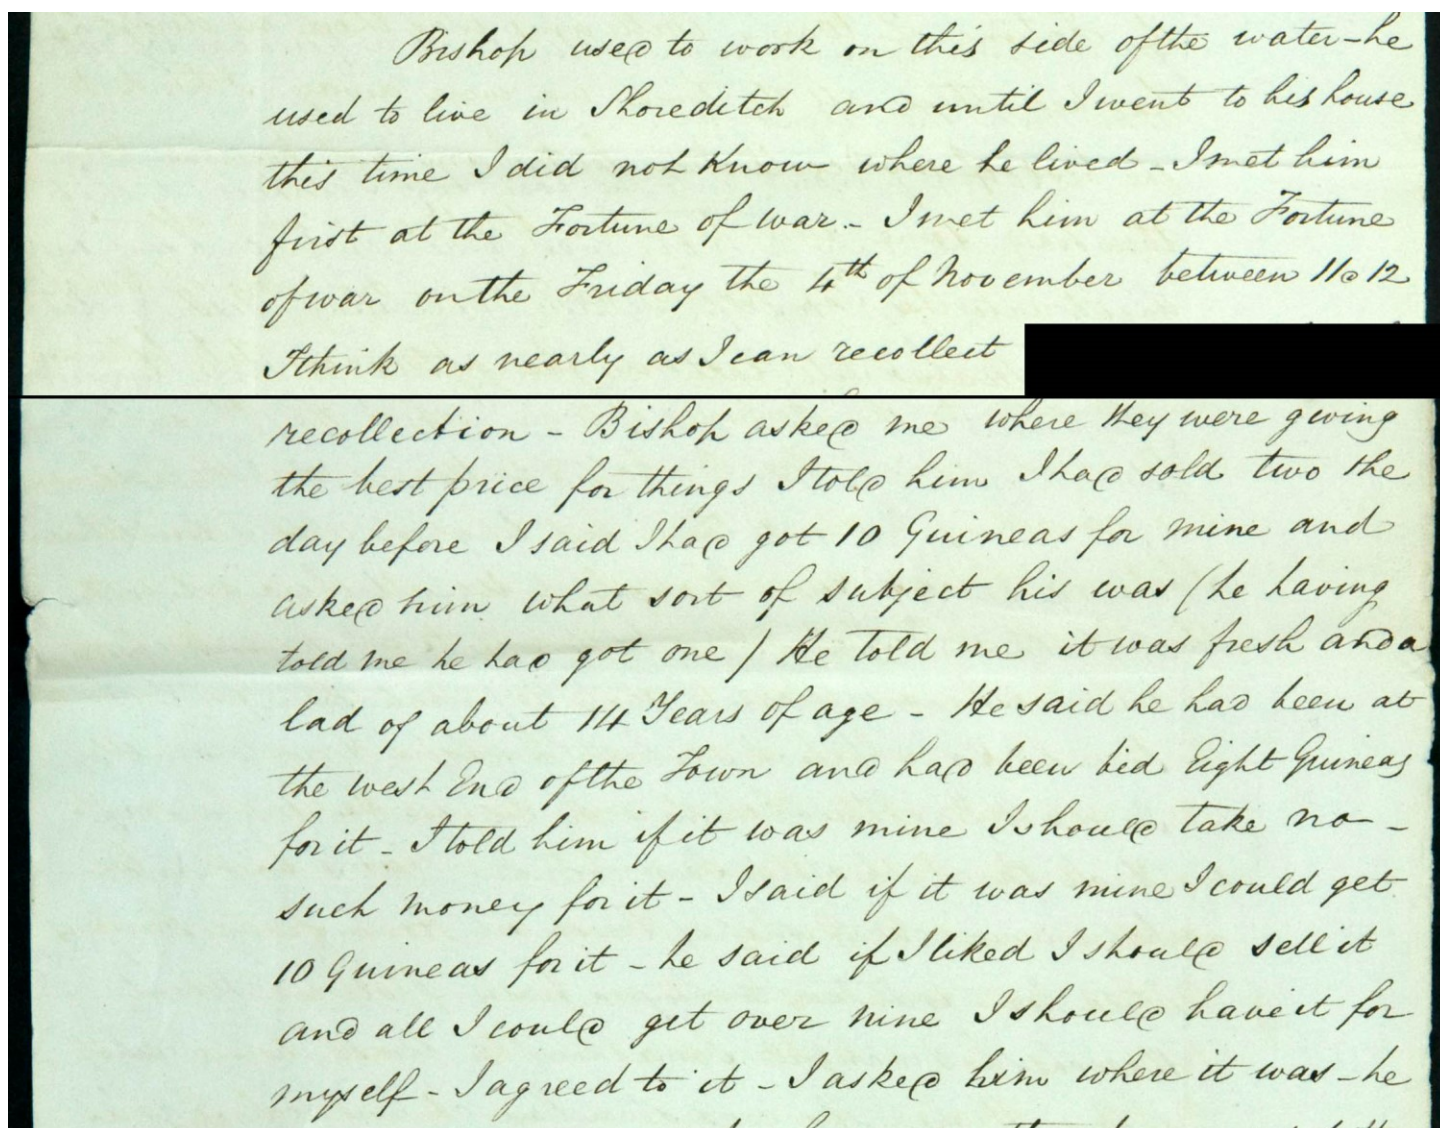 Bishop used to work on this side of the water - he
used to live in Shoreditch and until I went to his house
this time I did not Know where he lived - I met him
first at the Fortune of war. - I met him at the Fortune
of war on the Friday the 4th of November between 11 & 12
I think as nearly as I can recollect
recollection - Bishop asked me where they were giving
the best price for things I told him I had sold two the
day before I said I had got 10 Guineas for mine and
asked him what sort of subject his was (he having
told me he had got one) He told me it was fresh and a
lad of about 14 Years of age - He said he had been at
the west End of the Town and had been bid Eight Guineas
for it - I told him if it was mine I should take no -
such money for it - I said if it was mine I could get
10 Guineas for it - he said if I liked I should sell it
and all I could get over nine I should have it for
myself - I agreed to it - I asked him where it was - he